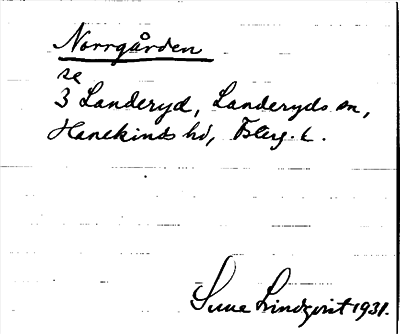 Norrgården
se
3 Landeryd, Landeryds sn,
Hanekinds hd, Österg. l.
Sune Lindqvist 1931.